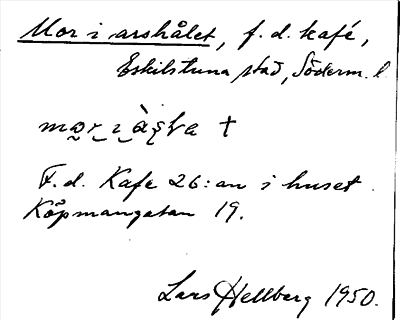 Mor i arshålet, f. d. kafé,
Eskilstuna stad, Söderm. l
†
F. d. Kafe 26:an i huset
Köpmangatan 19.
Lars Hellberg 1950.